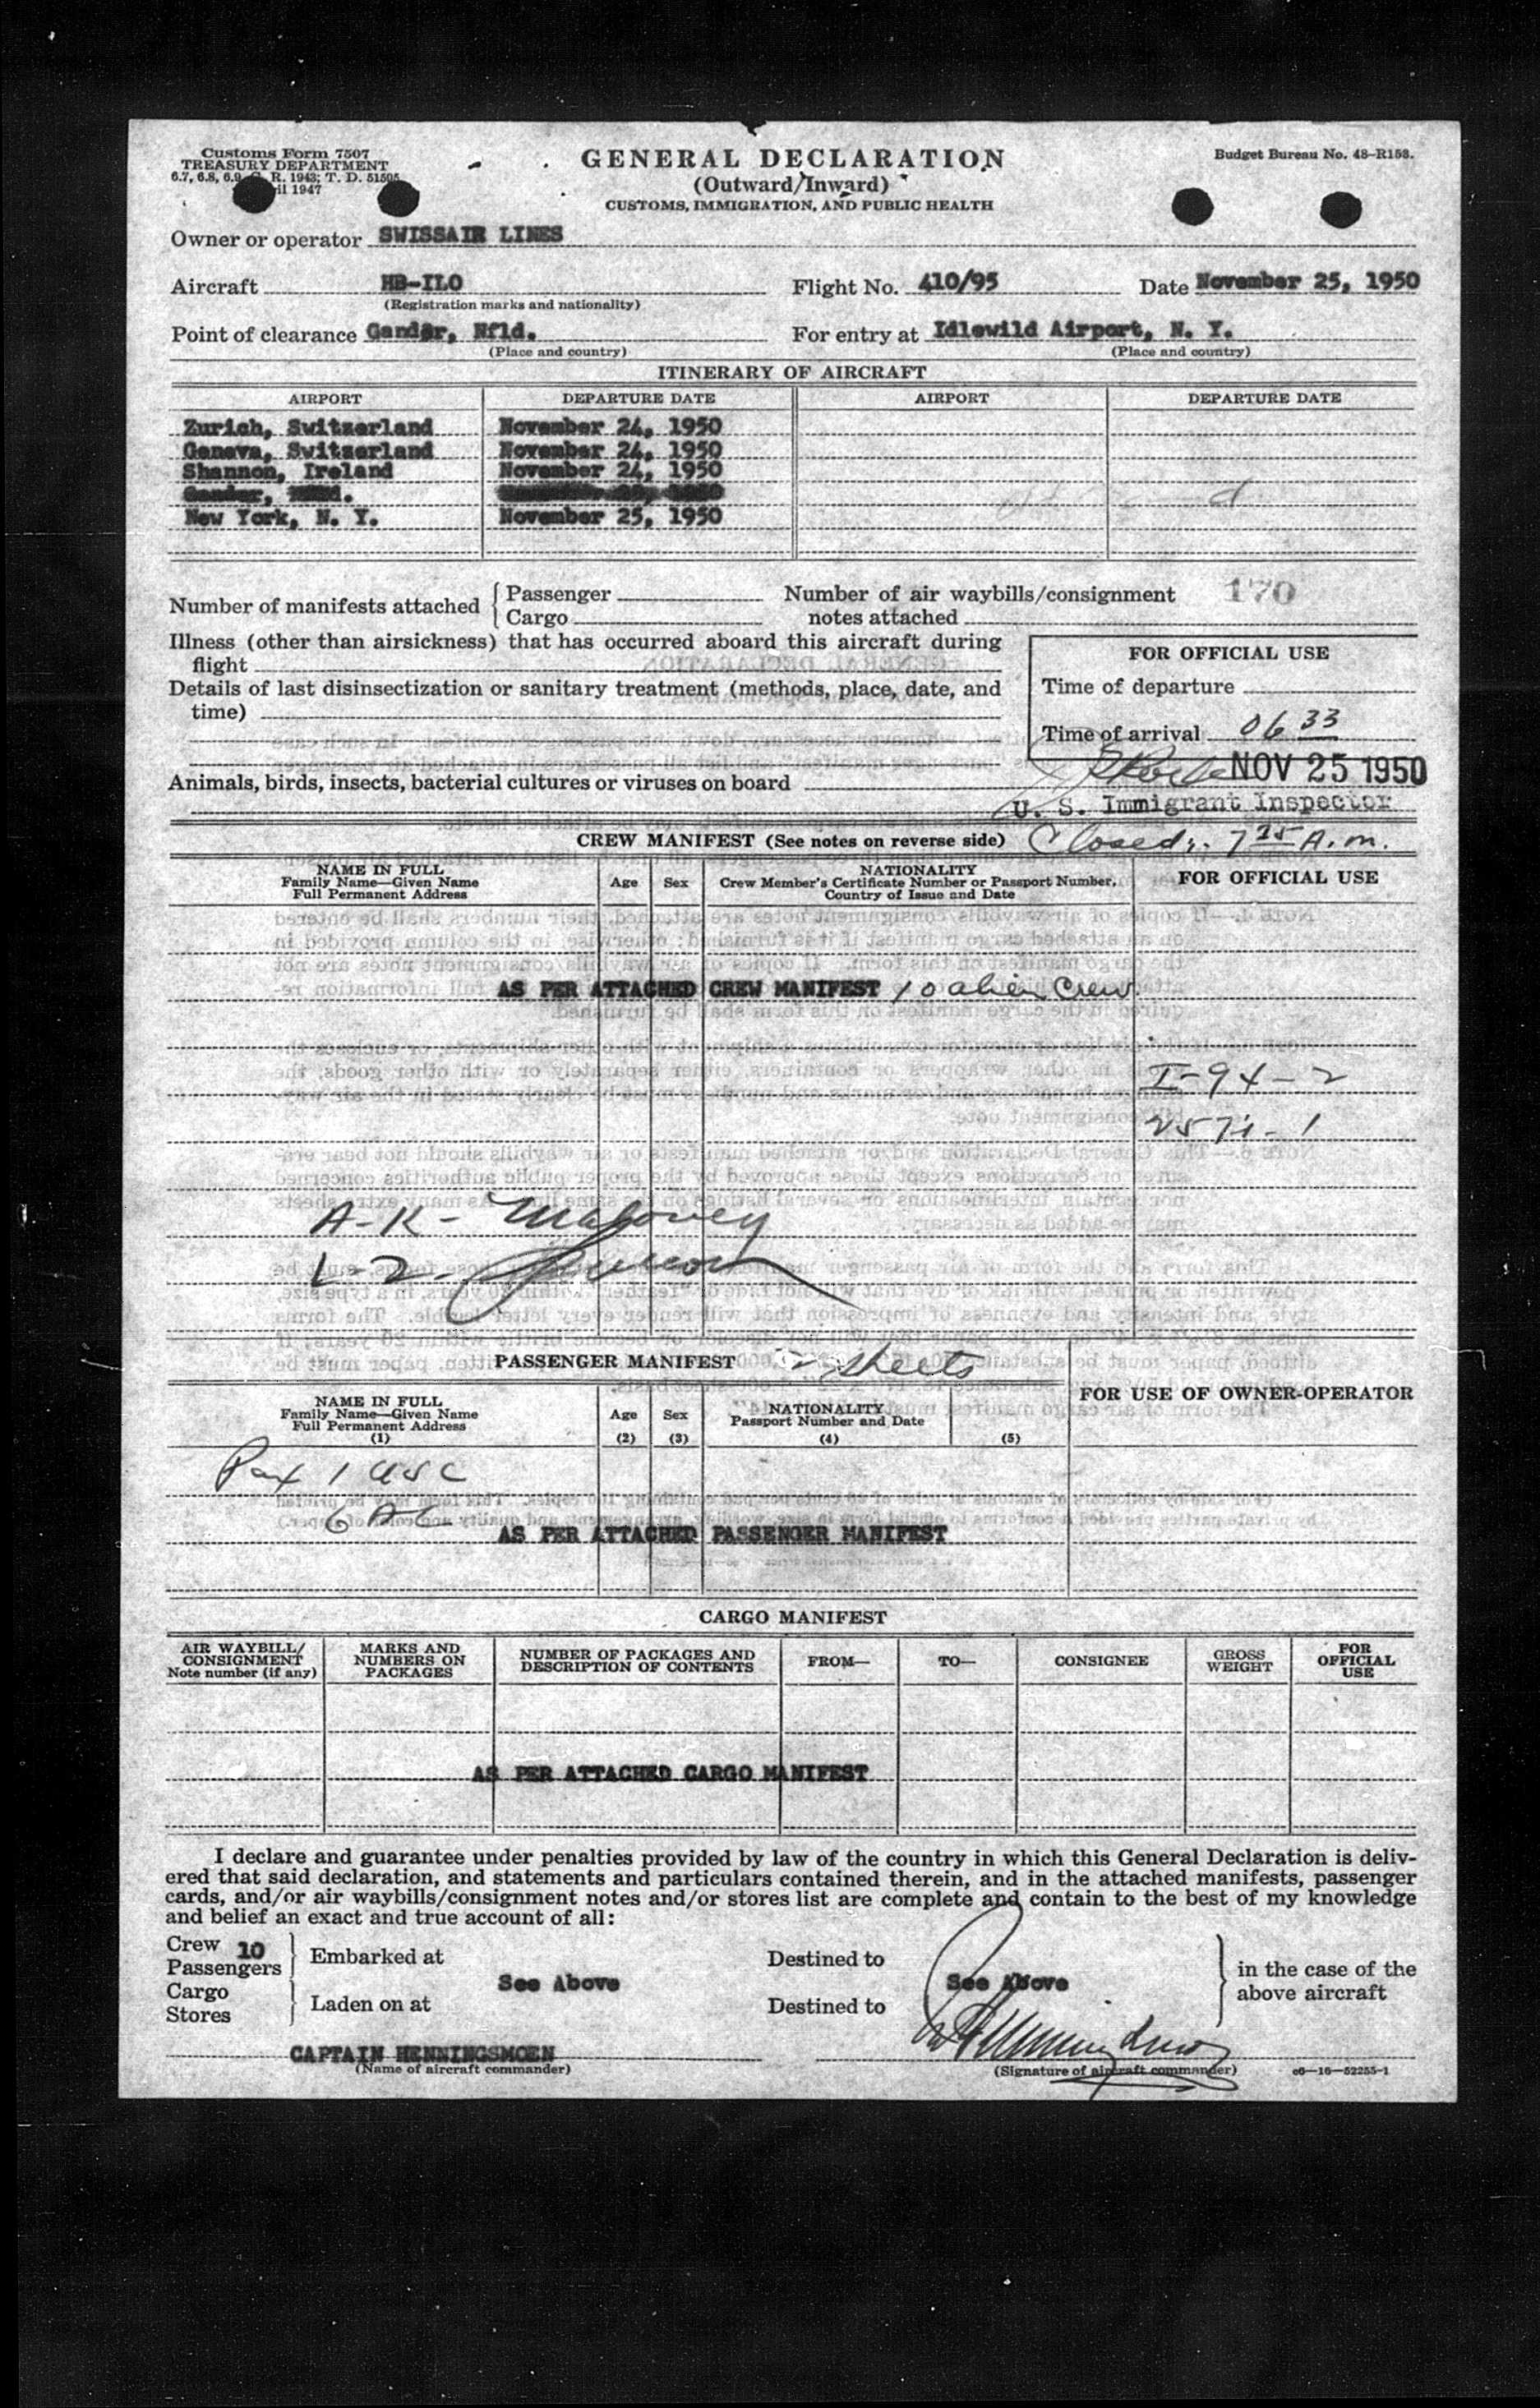 Customs Form 7507
TREASURY DEPARTMENT
6.7, 6.8, 6.9, C. R. 1943; T. D. 51505
1947
GENERAL DECLARATION
(Outward/Inward)
CUSTOMS, IMMIGRATION, AND PUBLIC HEALTH
Budget Bureau No. 48-R158.
Owner or operator SWISSAIR LINES
Aircraft HB-ILO Flight No. 410/95 Date November 25, 1950
(Registration marks and nationality)
Point of clearance Gander, Nfld. For entry at Idlewild Airport, N. Y.
(Place and country) (Place and country)
ITINERARY OF AIRCRAFT
AIRPORT DEPARTURE DATE AIRPORT DEPARTURE DATE
Zurich, Switzerland November 24, 1950
Geneva, Switzerland November 24, 1950
Shannon, Ireland November 24, 1950
Gander,
New York, N. Y. November 25, 1950
Number of manifests attached { Passenger
Cargo
Number of air waybills/consignment notes attached
170
Illness (other than airsickness) that has occurred aboard this aircraft during
flight
Details of last disinsectization or sanitary treatment (methods, place, date, and
time)
Animals, birds, insects, bacterial cultures or viruses on board
FOR OFFICIAL USE
Time of departure
Time of arrival 06 33
NOV 25 1950
U. S. Immigrant Inspector
CREW MANIFEST (See notes on reverse side) Closed: 7 25 A.m.
NAME IN FULL
Family Name—Given Name
Full Permanent Address
Age Sex
NATIONALITY
Crew Member's Certificate Number or Passport Number,
Country of Issue and Date
FOR OFFICIAL USE
AS PER ATTACHED CREW MANIFEST 10 alien Crew
I-94-2
A-K- Mahoney
L-2-
PASSENGER MANIFEST 2 sheets
NAME IN FULL
Family Name—Given Name
Full Permanent Address
(1)
Age
(2)
Sex
(3)
NATIONALITY
Passport Number and Date
(4) (5)
FOR USE OF OWNER-OPERATOR
Pax 1 USC
6 AC
AS PER ATTACHED PASSENGER MANIFEST
CARGO MANIFEST
AIR WAYBILL/
CONSIGNMENT
Note number (if any)
MARKS AND
NUMBERS ON
PACKAGES
NUMBER OF PACKAGES AND
DESCRIPTION OF CONTENTS
FROM— TO— CONSIGNEE
GROSS
WEIGHT
FOR
OFFICIAL
USE
AS PER ATTACHED CARGO MANIFEST
I declare and guarantee under penalties provided by law of the country in which this General Declaration is deliv-
ered that said declaration, and statements and particulars contained therein, and in the attached manifests, passenger
cards, and/or air waybills/consignment notes and/or stores list are complete and contain to the best of my knowledge
and belief an exact and true account of all:
Crew 10
Passengers
Cargo
Stores
Embarked at
See Above
Laden on at
Destined to
See Above
Destined to
in the case of the
above aircraft
CAPTAIN HENNINGSMOEN
(Name of aircraft commander) (Signature of aircraft commander) c6—16—52255-1